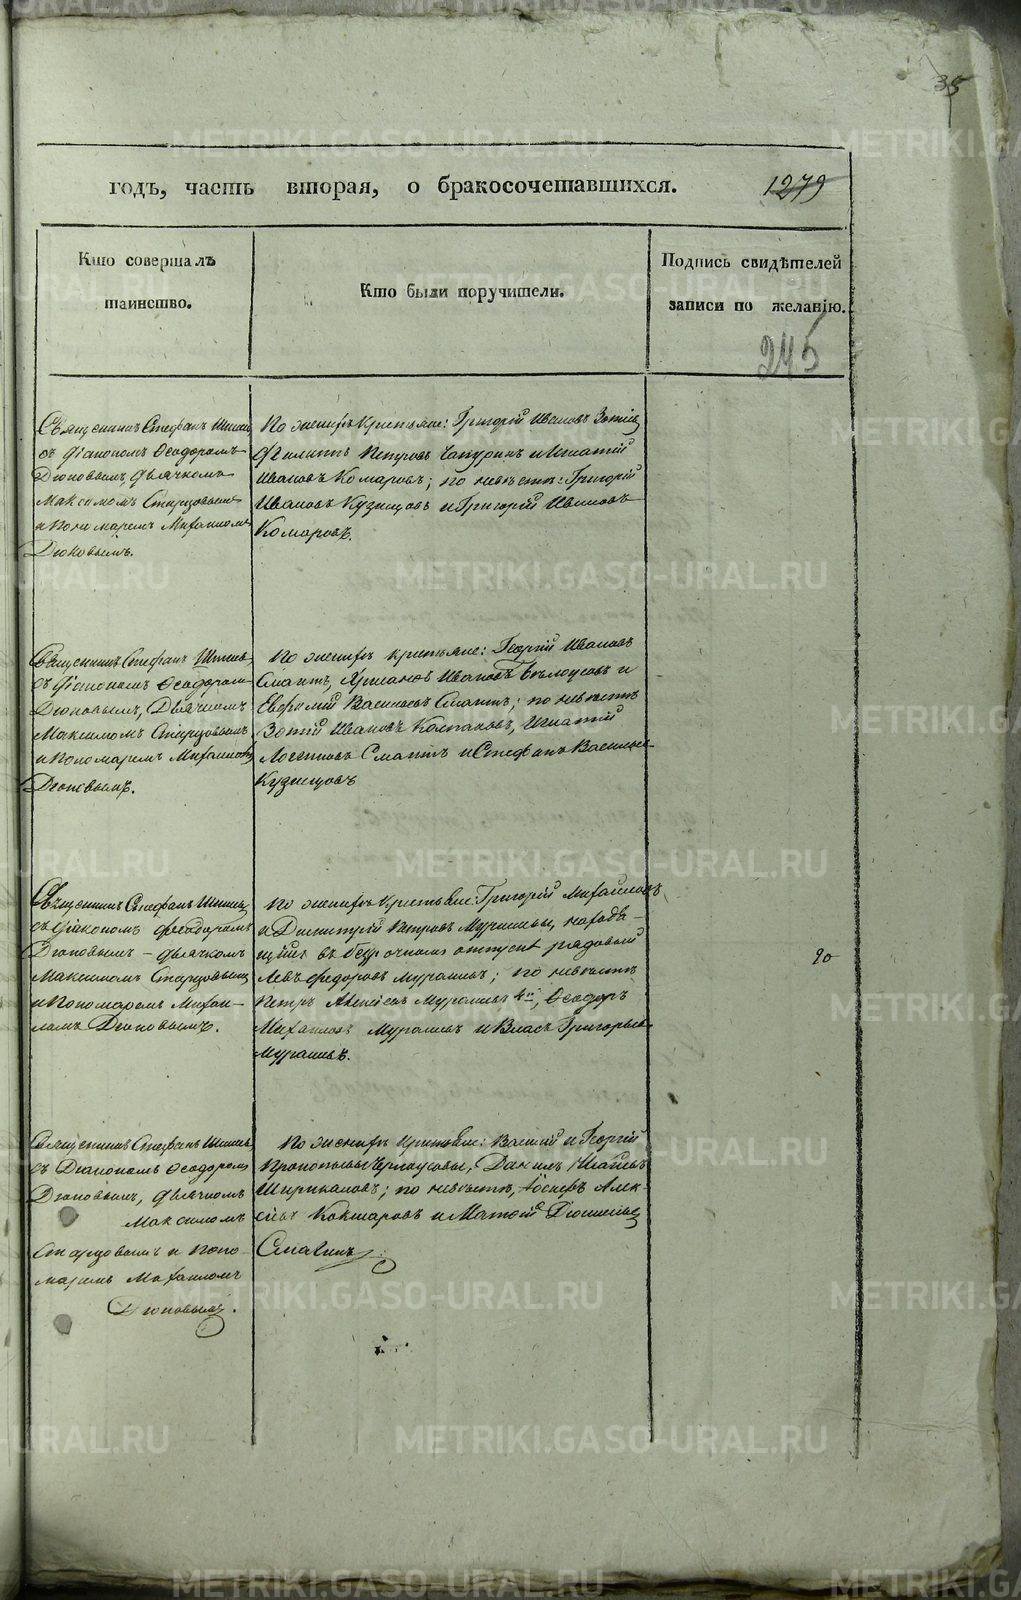 35
годъ, часть вторая, о бракосочетавшихся. 1279
Кто совершалъ
таинство.
Кто были поручители.
Подпись свидѣтелей
записи по желанію.
245
Священникъ Стефанъ
съ діакономъ Ѳеодоромъ
Дюковымъ, дьячкомъ
Максимомъ Старцовымъ
и пономаремъ Михаиломъ
Дюковымъ.
По женихѣ крестьяне: Григорій Ивановъ
Филиппъ Петровъ Чапуринъ и Игнатій
Ивановъ Комаровъ; по невѣстѣ: Григорій
Ивановъ Кузнецовъ и Григорій Ивановъ
Комаровъ.
Священникъ Стефанъ
съ діакономъ Ѳеодоромъ
Дюковымъ, дьячкомъ
Максимомъ Старцовымъ
и пономаремъ Михаиломъ
Дюковымъ.
По женихѣ крестьяне: Георгій Ивановъ
Ивановъ Бѣлоусовъ и
Евфимій Васильевъ; по невѣстѣ
Зотій Ивановъ Колпаковъ, Игнатій
и Стефанъ Васильевъ
Кузнецовъ
Священникъ Стефанъ
съ діакономъ Феодоромъ
Дюковымъ – дьячкомъ
Максимомъ Старцовымъ
и пономаремъ Михаи-
ломъ Дюковымъ.
По женихѣ крестьяне: Григорій Михайловъ
и Димитрій Петровъ Мурашевы, находя-
щійся въ безсрочномъ отпуске рядовый
Левъ Федоровъ Мурашевъ; по невѣстѣ
Петръ Алексѣевъ Мурашевъ, Ѳеодоръ
Михаиловъ Мурашевъ и Власъ Григорьевъ
Мурашевъ.
20
Священникъ Стефанъ
съ Діакономъ Ѳеодоромъ
Дюковымъ, дьячкомъ
Максимомъ
Старцовымъ и поно-
маремъ Михаиломъ
Дюковымъ.
По женихѣ крестьяне: Василій и Георгій
Прокопьевы Черноусовы, Данилъ
Ширинкаловъ; по невѣстѣ, Іосифъ Алек-
сѣевъ Кокшаровъ и Матфій
METRIKI.GASO-URAL.RU